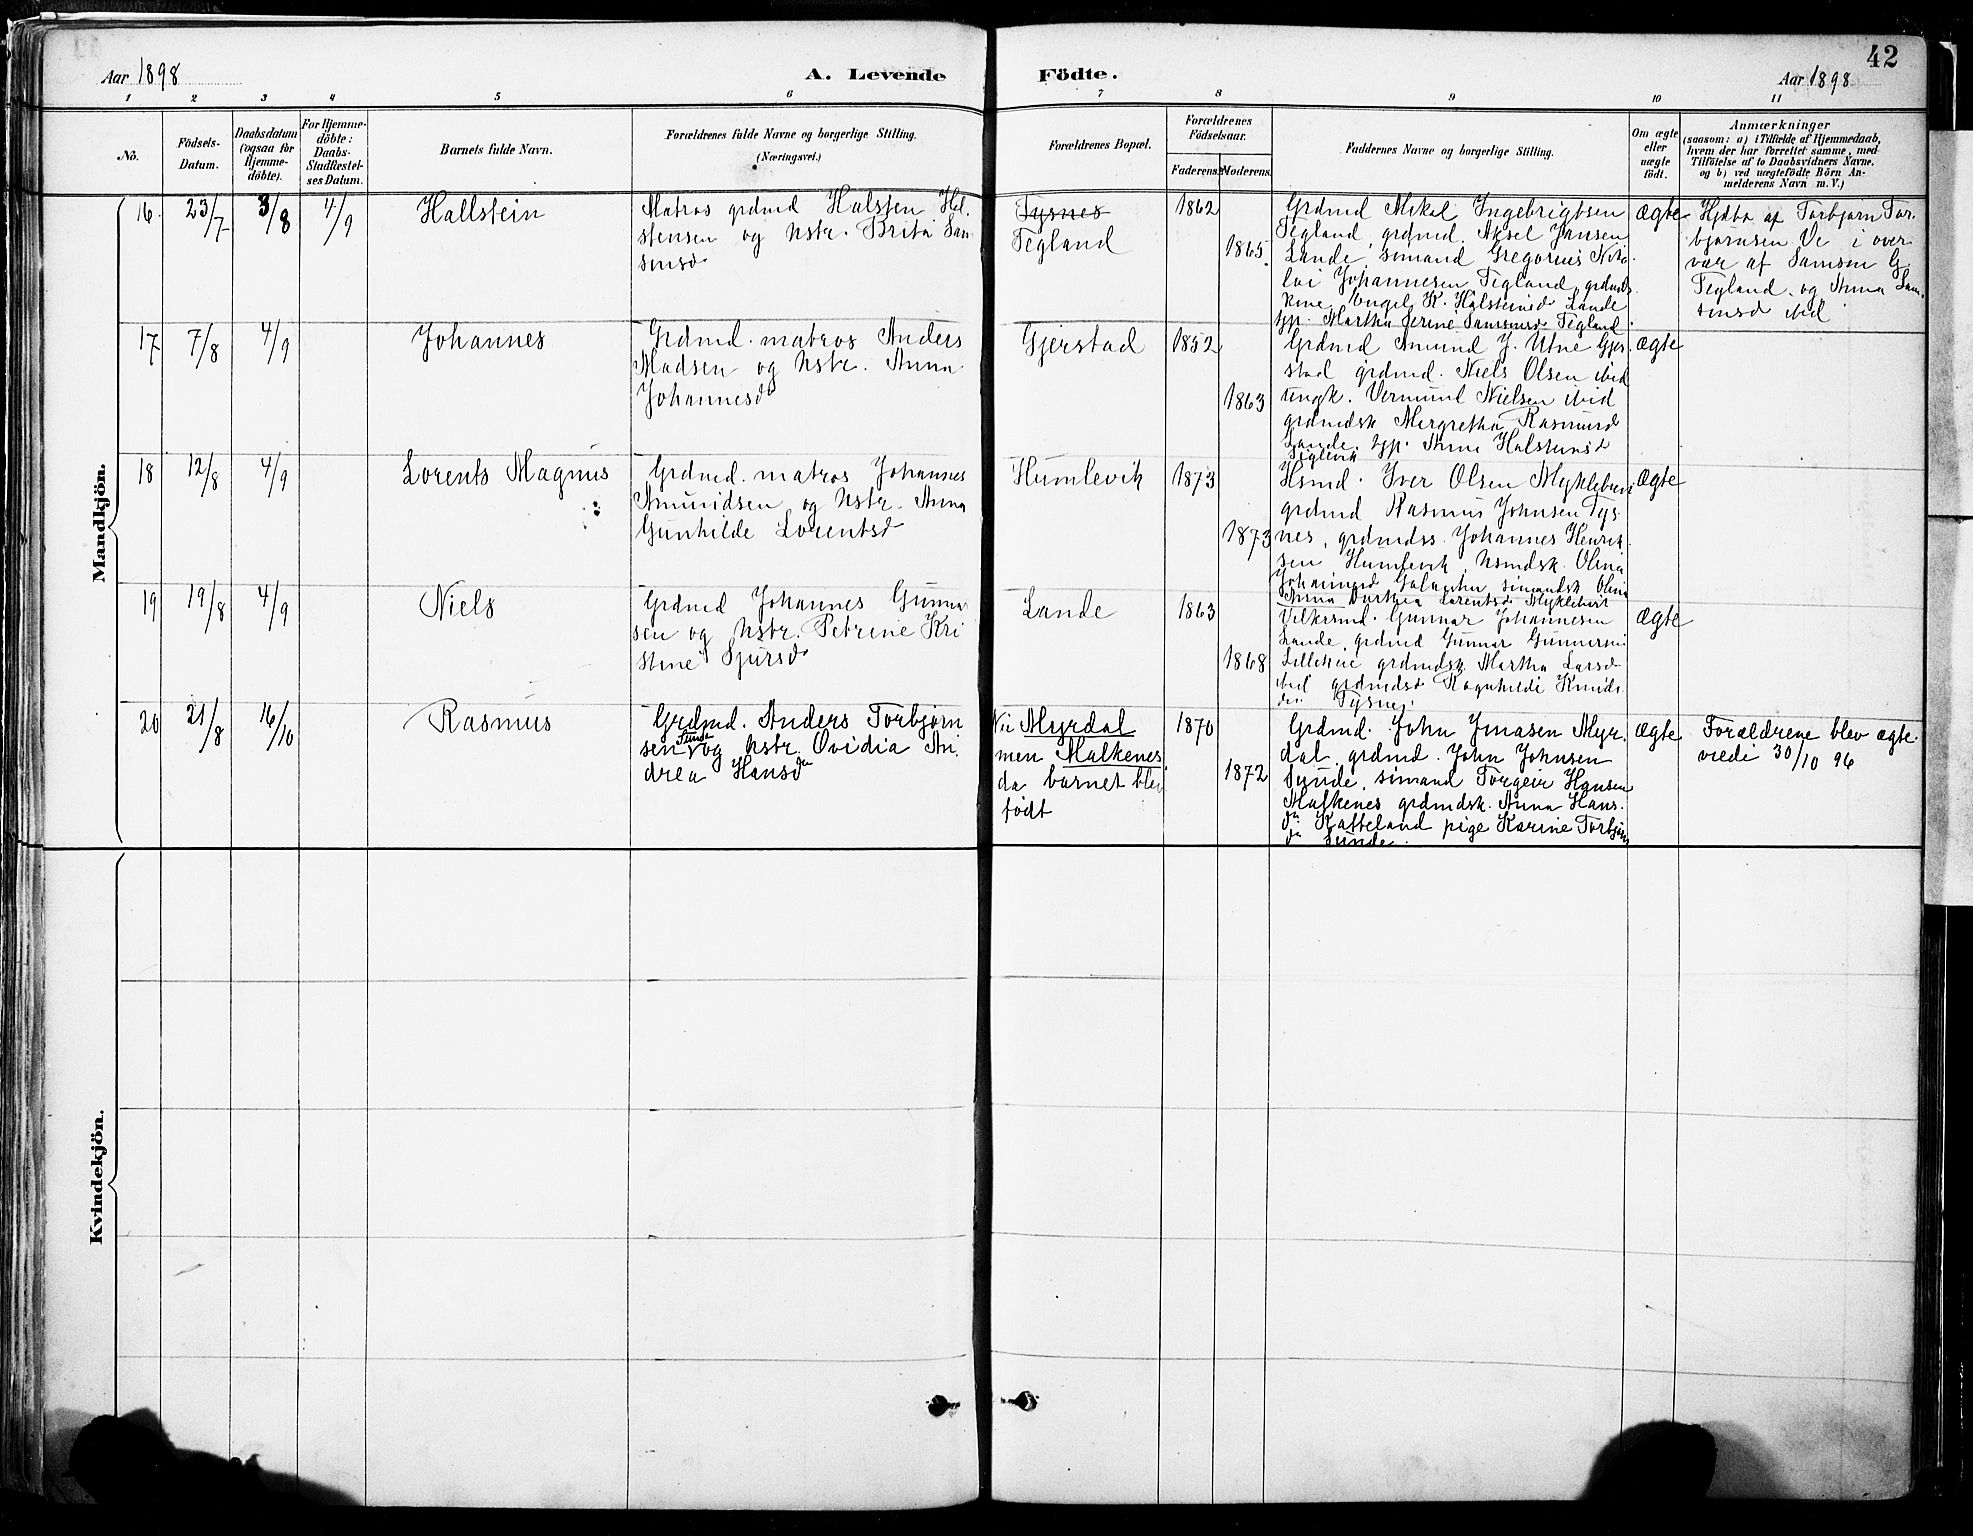 42
Aar 1898
A. Levende Födte.
Aar 1898
1 2 3 4 5 6 7 8 9 10 11
No.
Födsels-
Datum.
Daabsdatum
(ogsaa for
Hjemme-
döbte).
For Hjemme-
döbte:
Daabs-
Stadfæstel-
ses Datum.
Barnets fulde Navn.
Forældrenes fulde Navne og borgerlige Stilling.
(Næringsvei.)
Forældrenes Bopæl.
Forældrenes
Födselsaar.
Faderens. Moderens.
Faddernes Navne og borgerlige Stilling.
Om ægte
eller
uægte
födt.
Anmærkninger
(saasom: a) i Tilfælde af Hjemmedaab,
hvem der har forrettet samme, med
Tilföielse af to Daabsvidners Navne,
og b) ved uægtefödte Börn An-
melderens Navn m. V.)
Mandkjön.
16. 23/7 3/8 4/9
Hallstein
Matros grdmd Halsten Hal
stensen og hstr. Brita Sam
sonsd
Tysnes
Tegland
1862
1865.
Grdmd Mikal Ingebrigtsen
Tegland, grdmd. Aksel Jansen
Lande, sømand Gregorius Niko
lai Johannesen Tegland, grdmds
kone Engel K. Halsteinsd Lande
tjp. Martha Serine Samsonsd Tegland
ægte
Hjdbt af Torbjørn Tor
bjørnsen Ve i over
vær af Samson G.
Tegland og Anna Sam
sonsd ibid
17 7/8 4/9
Johannes
Grdmd. matros Anders
Madsen og hstr. Anna
Johannesd
Gjerstad
1852
1863
Grdmd Amund J. Utne Gjer
stad grdmd. Niels Olsen ibid
ungk. Vermund Nielsen ibid
grdmdsk Mergretha Rasmusd
Lande, tjp. Anna Halstensd
Teglevik
ægte
18 12/8 4/9
Lorents Magnus
Grdmd. matros Johannes
Amundsen og hstr. Anna
Gunhilde Lorentsd
Humlevik
1873
1873
Hsmd. Iver Olsen Myklebust
grdmd Rasmus Johnsen Tys
nes, grdmdss. Johannes Henrik
sen Humlevik, hsmdsk. Olina
sømandsk Olina
Anna Dorthea Lorentsd Myklebust
ægte
19 19/8 4/9
Niels
Grdmd Johannes Gunna
sen og hstr. Petrine Kri
stine Sjursd
Lande
1863
1868
Gunnar Johannesen
Lande, grdmd Gunnar Gunnarsen
grdmdsk Martha Larsd
ibid grdmdsd Ragnhilde Knuds
da Tysnes.
ægte
20 21/8 16/10
Rasmus
Grdmd. Anders Torbjørn
sen Sunde og hstr. Ovidia An
drea Hansda
Nu Myrdal
men Malkenes
da barnet blev
født
1870
1872
Grdmd. John Jonasen Myr
dal, grdmd. John Johnsen
Sunde, sømand Torgeir Hansen
Malkenes grdmdsk. Anna Hans
da Katteland pige Karine Torbjørns
da Sunde.
ægte
Forældrene blev ægte
viede 30/10 96
Kvindekjön.